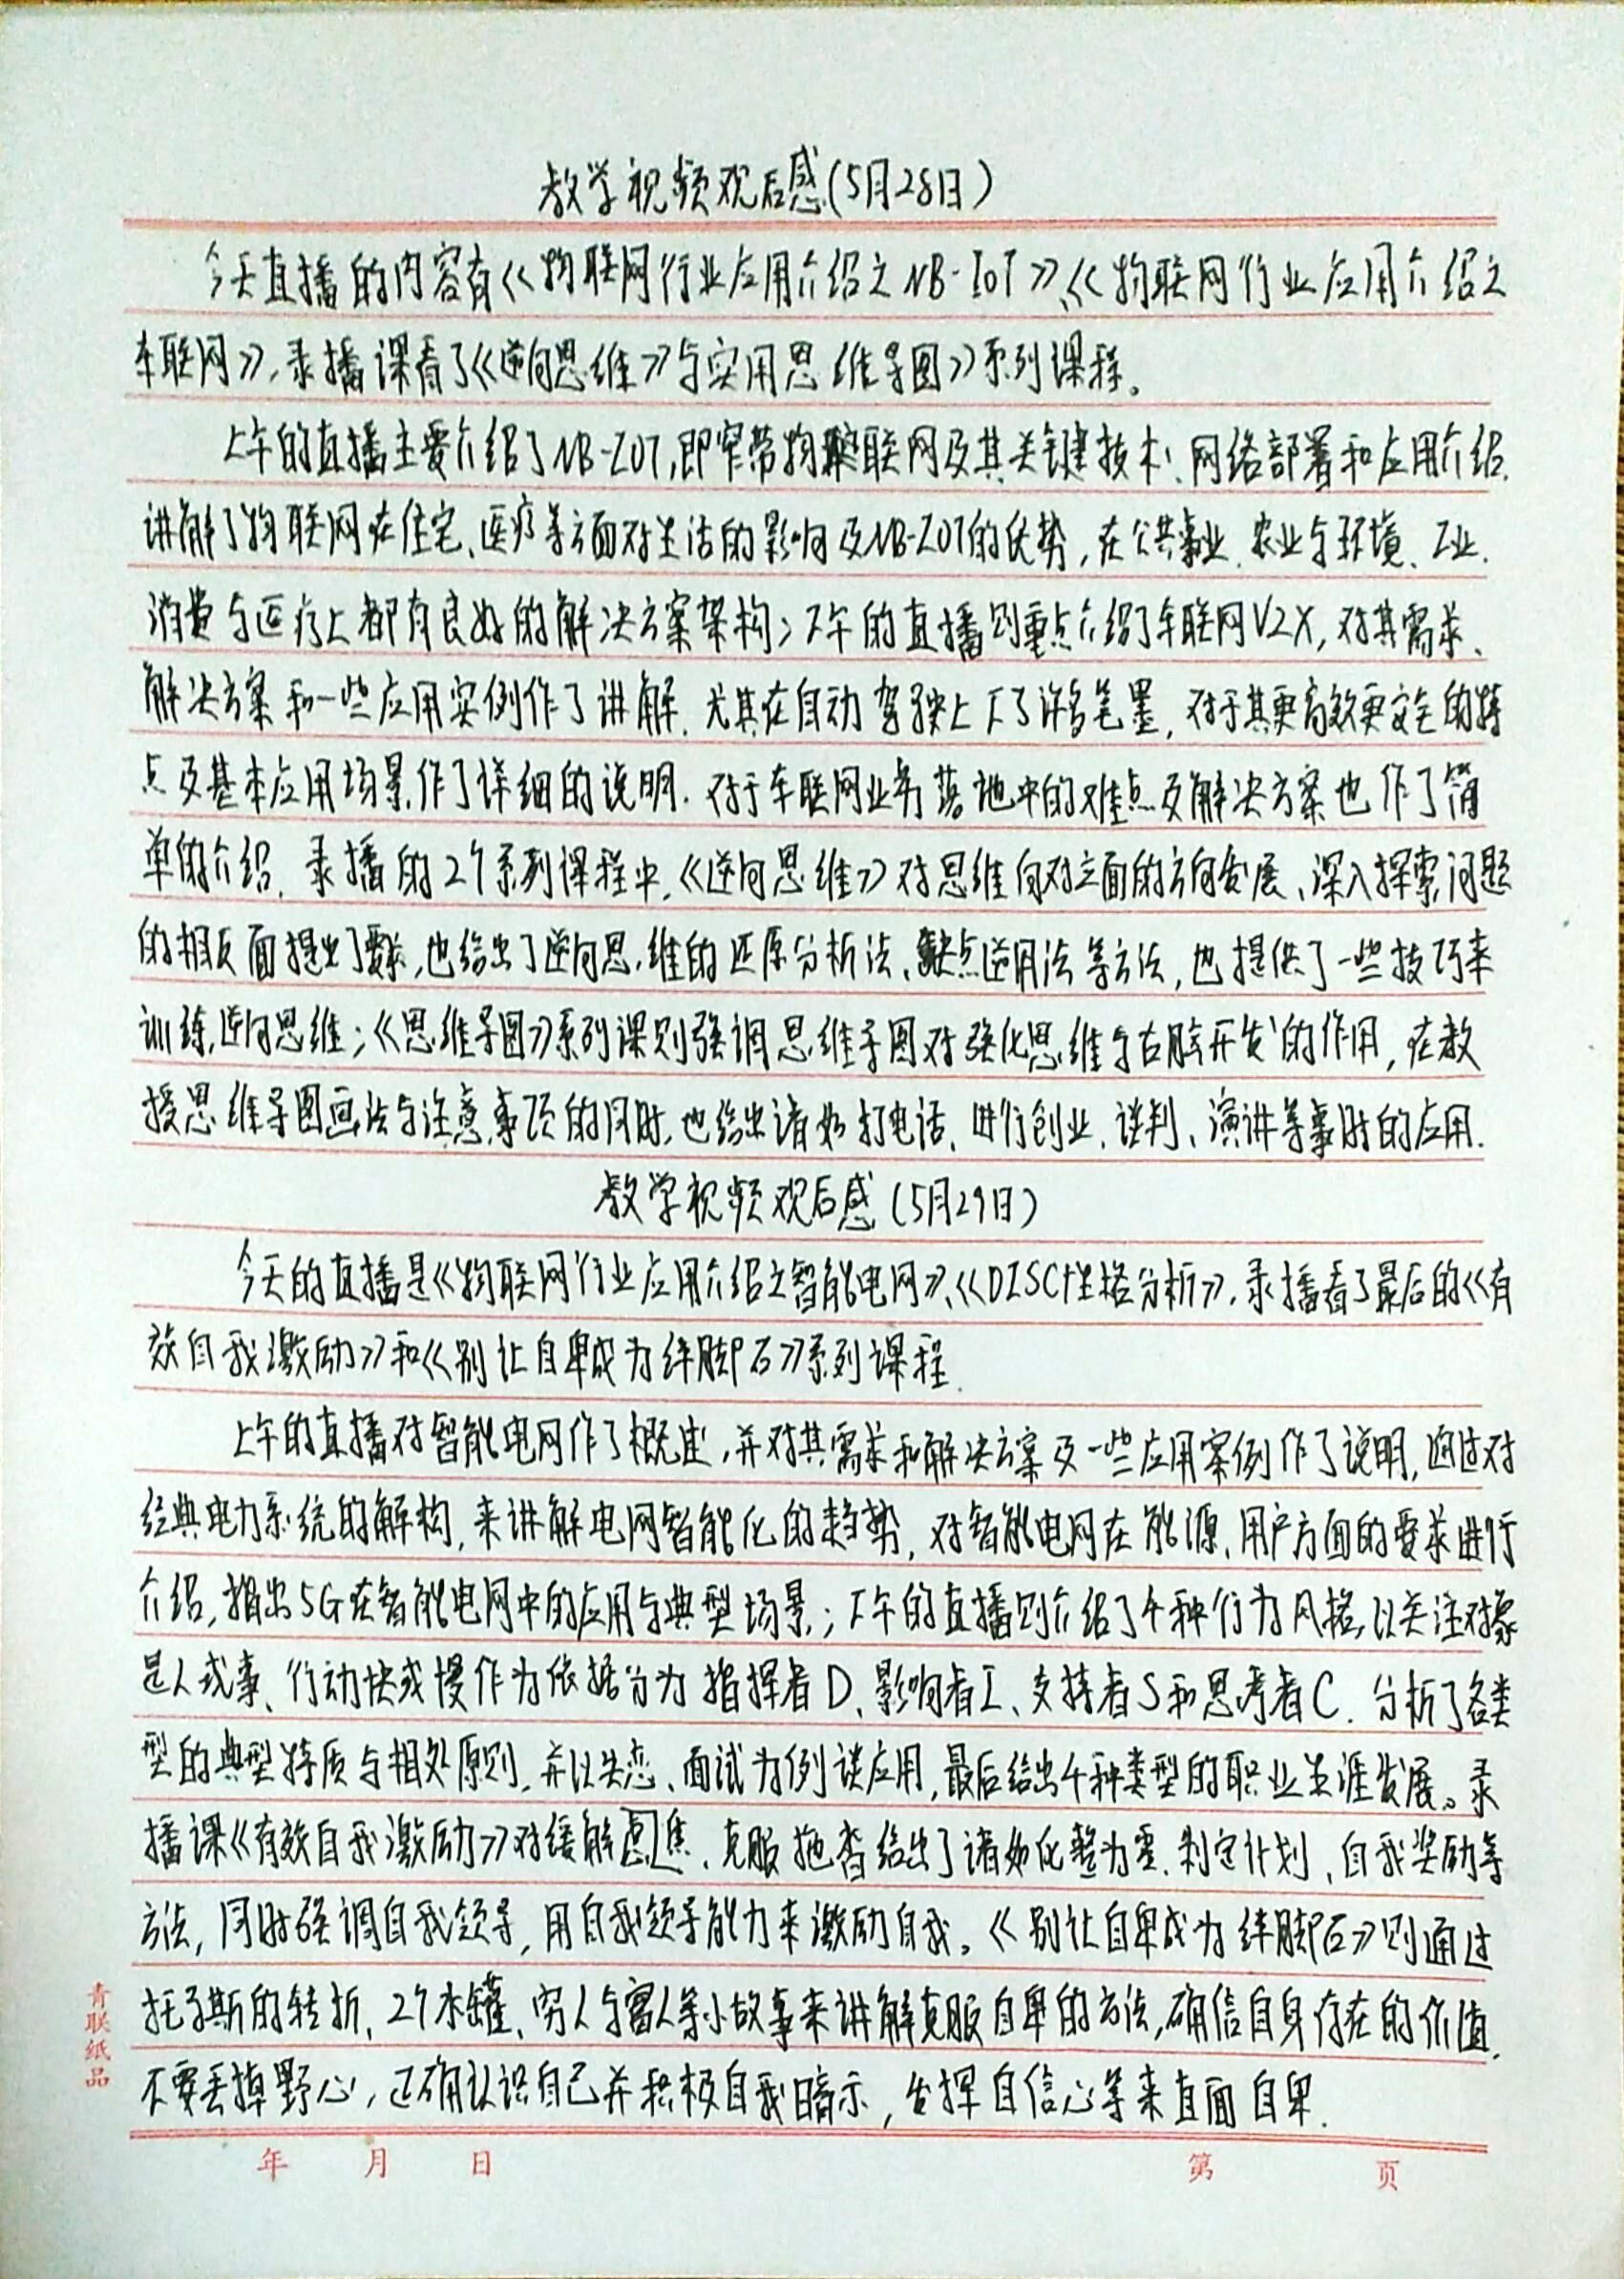 教学视频观后感(5月28日)
今天直播的内容有《物联网行业应用介绍之NB-IoT》、《物联网行业应用介绍之
车联网》,录播课看了《逆向思维》与实用思维导图》系列课程。
上午的直播主要介绍了NB-IOT,即窄带物联网及其关键技术、网络部署和应用介绍.
讲解了物联网在住宅、医疗等方面对生活的影响及NB-IOT的优势,在公共事业、农业与环境、工业、
消费与医疗上都有良好的解决方案架构;下午的直播则重点介绍了车联网V2X,对其需求、
解决方案和一些应用实例作了讲解.尤其在自动驾驶上下了许多笔墨,对于其更高效更安全的特
点及基本应用场景作了详细的说明.对于车联网业务落地中的难点及解决方案也作了简
单的介绍.录播的2个系列课程中,《逆向思维》对思维向对立面的方向发展、深入探索问题
的相反面提出了要求,也给出了逆向思维的还原分析法、缺点逆用法等方法,也提供了一些技巧来
训练逆向思维;《思维导图》系列课则强调思维导图对强化思维与右脑开发的作用,在教
授思维导图画法与注意事项的同时,也给出诸如打电话、进行创业、谈判、演讲等事时的应用.
教学视频观后感(5月29日)
今天的直播是《物联网行业应用介绍之智能电网》、《DISC性格分析》,录播看了最后的《有
效自我激励》和《别让自卑成为绊脚石》系列课程.
上午的直播对智能电网作了概述,并对其需求和解决方案及一些应用案例作了说明,通过对
经典电力系统的解构,来讲解电网智能化的趋势,对智能电网在能源、用户方面的要求进行
介绍,指出5G在智能电网中的应用与典型场景;下午的直播则介绍了4种行为风格,以关注对象
是人或事、行动快或慢作为依据分为指挥者D、影响者I、支持者S和思考者C.分析了各类
型的典型特质与相处原则,并以失恋、面试为例谈应用,最后给出4种类型的职业生涯发展。录
播课《有效自我激励》对缓解焦、克服拖沓给出了诸如化整为零、制定计划、自我奖励等
方法,同时强调自我领导,用自我领导能力来激励自我。《别让自卑成为绊脚石》则通过
托马斯的转折、2个水罐、穷人与富人等小故事来讲解克服自卑的方法,确信自身存在的价值,
不要丢掉野心,正确认识自己并积极自我暗示,发挥自信心等来直面自卑.
青联纸品
年 月 日 第 页